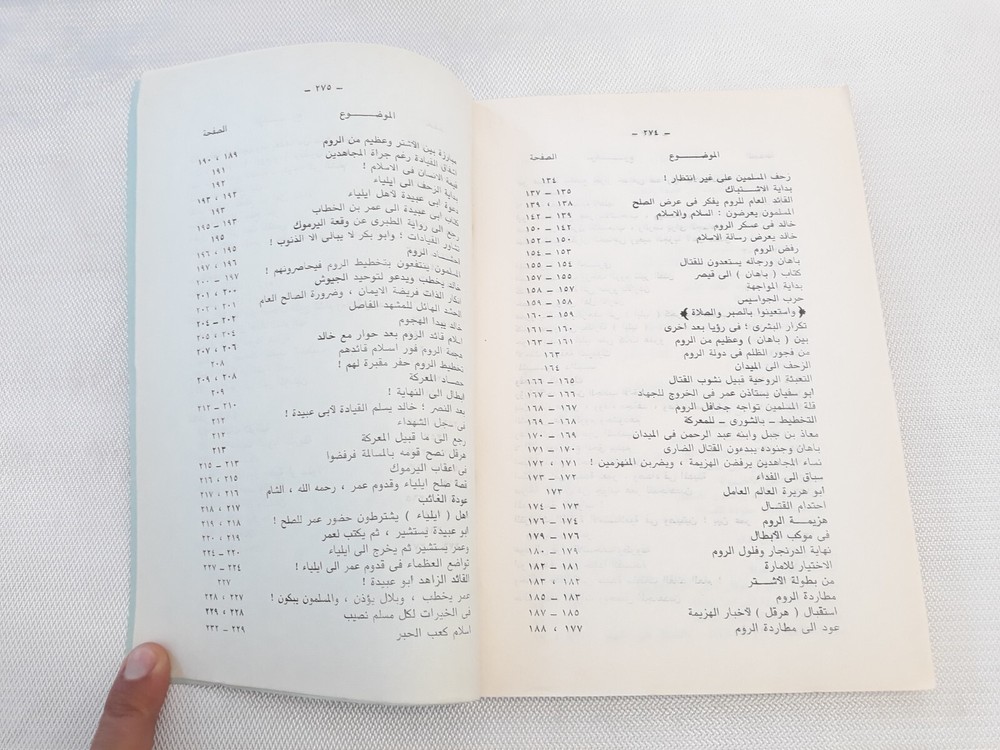 — ٢٧٤ —
الموضــــــوع الصفحة
زحف المسلمين على غير انتظار ! ١٣٤
بداية الاشـــتباك ١٣٥ — ١٣٧
القائد العام للروم يفكر فى عرض الصلح ١٣٨ ، ١٣٩
المسلمون يعرضون : السلام والاسلام ١٣٩ — ١٤٢
خالد فى عسكر الروم ١٤٢ — ١٥٠
خالد يعرض رسالة الاسلام ١٥٠ — ١٥٢
رفض الروم ١٥٣ — ١٥٤
باهان ورجاله يستعدون للقتال ١٥٤ — ١٥٥
كتاب ( باهان ) الى قيصر ١٥٥ — ١٥٧
بداية المواجهة ١٥٧ — ١٥٨
حرب الجواسيس ١٥٨ — ١٥٩
﴿ واستعينوا بالصبر والصلاة ﴾ ١٥٩ — ١٦٠
تكرار البشرى ؛ فى رؤيا بعد أخرى ١٦٠ — ١٦١
بين ( باهان ) وعظيم من الروم ١٦١ — ١٦٣
من فجور الظلم فى دولة الروم ١٦٣
الزحف الى الميدان ١٦٤
التعبئة الروحية قبيل نشوب القتال ١٦٥ — ١٦٦
ابو سفيان يستأذن عمر فى الخروج للجهاد ١٦٦ — ١٦٧
قلة المسلمين تواجه جحافل الروم ١٦٧ — ١٦٨
التخطيط — بالشورى — للمعركة ١٦٨ — ١٦٩
معاذ بن جبل وابنه عبد الرحمن فى الميدان ١٦٩ — ١٧٠
باهان وجنوده يبدءون القتال الضارى ١٧٠ — ١٧١
نساء المجاهدين يرفضن الهزيمة ، ويضربن المنهزمين ! ١٧١ ، ١٧٢
سباق الى الفداء ١٧٢ — ١٧٣
ابو هريرة العالم العامل ١٧٣
احتدام القتــال ١٧٣ — ١٧٤
هزيمـــة الروم ١٧٤ — ١٧٦
فى موكب الأبطال ١٧٦ — ١٧٩
نهاية الدرنجار وفلول الروم ١٧٩ — ١٨٠
الاختيار للامارة ١٨١ — ١٨٢
من بطولة الأشـــتر ١٨٢ ، ١٨٣
مطاردة الروم ١٨٣ — ١٨٥
استقبال ( هرقل ) لأخبار الهزيمة ١٨٥ — ١٨٧
عود الى مطاردة الروم ١٧٧ ، ١٨٨
— ٢٧٥ —
الموضــــــوع الصفحة
مبارزة بين الأشتر وعظيم من الروم ١٨٩ ، ١٩٠
القيادة رغم جراة المجاهدين ١٩١
قيمة الانسان فى الاسلام ! ١٩٢
بداية الزحف الى ايلياء ١٩٢ ، ١٩٣
دعوة ابى عبيدة لأهل ايلياء ١٩٣
كتاب ابى عبيدة الى عمر بن الخطاب ١٩٣ — ١٩٥
رجع الى رواية الطبرى عن وقعة اليرموك ١٩٥
تشاور القيادات ؛ وابو بكر لا يبالى الا الذنوب ! ١٩٥ ، ١٩٦
الروم ١٩٦ ، ١٩٧
المسلمون ينتفعون بتخطيط الروم فيحاصرونهم ! ١٩٧ — ٢٠٠
خالد يخطب ويدعو لتوحيد الجيوش ٢٠٠ ، ٢٠١
انكار الذات فريضة الايمان ، وضرورة الصالح العام ٢٠١ ، ٢٠٢
الحشد الهائل للمشهد الفاصل ٢٠٢ — ٢٠٤
خالد يبدا الهجوم ٢٠٤ ، ٢٠٥
اسلام قائد الروم بعد حوار مع خالد ٢٠٦ ، ٢٠٧
الروم فور اسلام قائدهم ٢٠٨
تخطيط الروم حفر مقبرة لهم ! ٢٠٨ ، ٢٠٩
حصاد المعركة ٢٠٩
ابطال الى النهاية ! ٢١٠ — ٢١٢
بعد النصر ؛ خالد يسلم القيادة لأبى عبيدة ! ٢١٢
فى سجل الشهداء ٢١٢
رجع الى ما قبيل المعركة ٢١٣
هرقل نصح قومه بالمسالمة فرفضوا ٢١٣ — ٢١٥
فى اعقاب اليرموك ٢١٥ ، ٢١٦
قصة صلح ايلياء وقدوم عمر ، رحمه الله ، الشام ٢١٦ ، ٢١٧
عودة الغائب ٢١٧ ، ٢١٨
اهل ( ايلياء ) يشترطون حضور عمر للصلح ! ٢١٨ ، ٢١٩
ابو عبيدة يستشير ، ثم يكتب لعمر ٢١٩ ، ٢٢٠
وعمر يستشير ثم يخرج الى ايلياء ٢٢٠ — ٢٢٤
تواضع العظماء فى قدوم عمر الى ايلياء ! ٢٢٤ — ٢٢٧
القائد الزاهد ابو عبيدة ! ٢٢٧
عمر يخطب ، وبلال يؤذن ، والمسلمون يبكون ! ٢٢٧ ، ٢٢٨
فى الخيرات لكل مسلم نصيب ٢٢٨ ، ٢٢٩
اسلام كعب الحبر ٢٢٩ — ٢٣٢